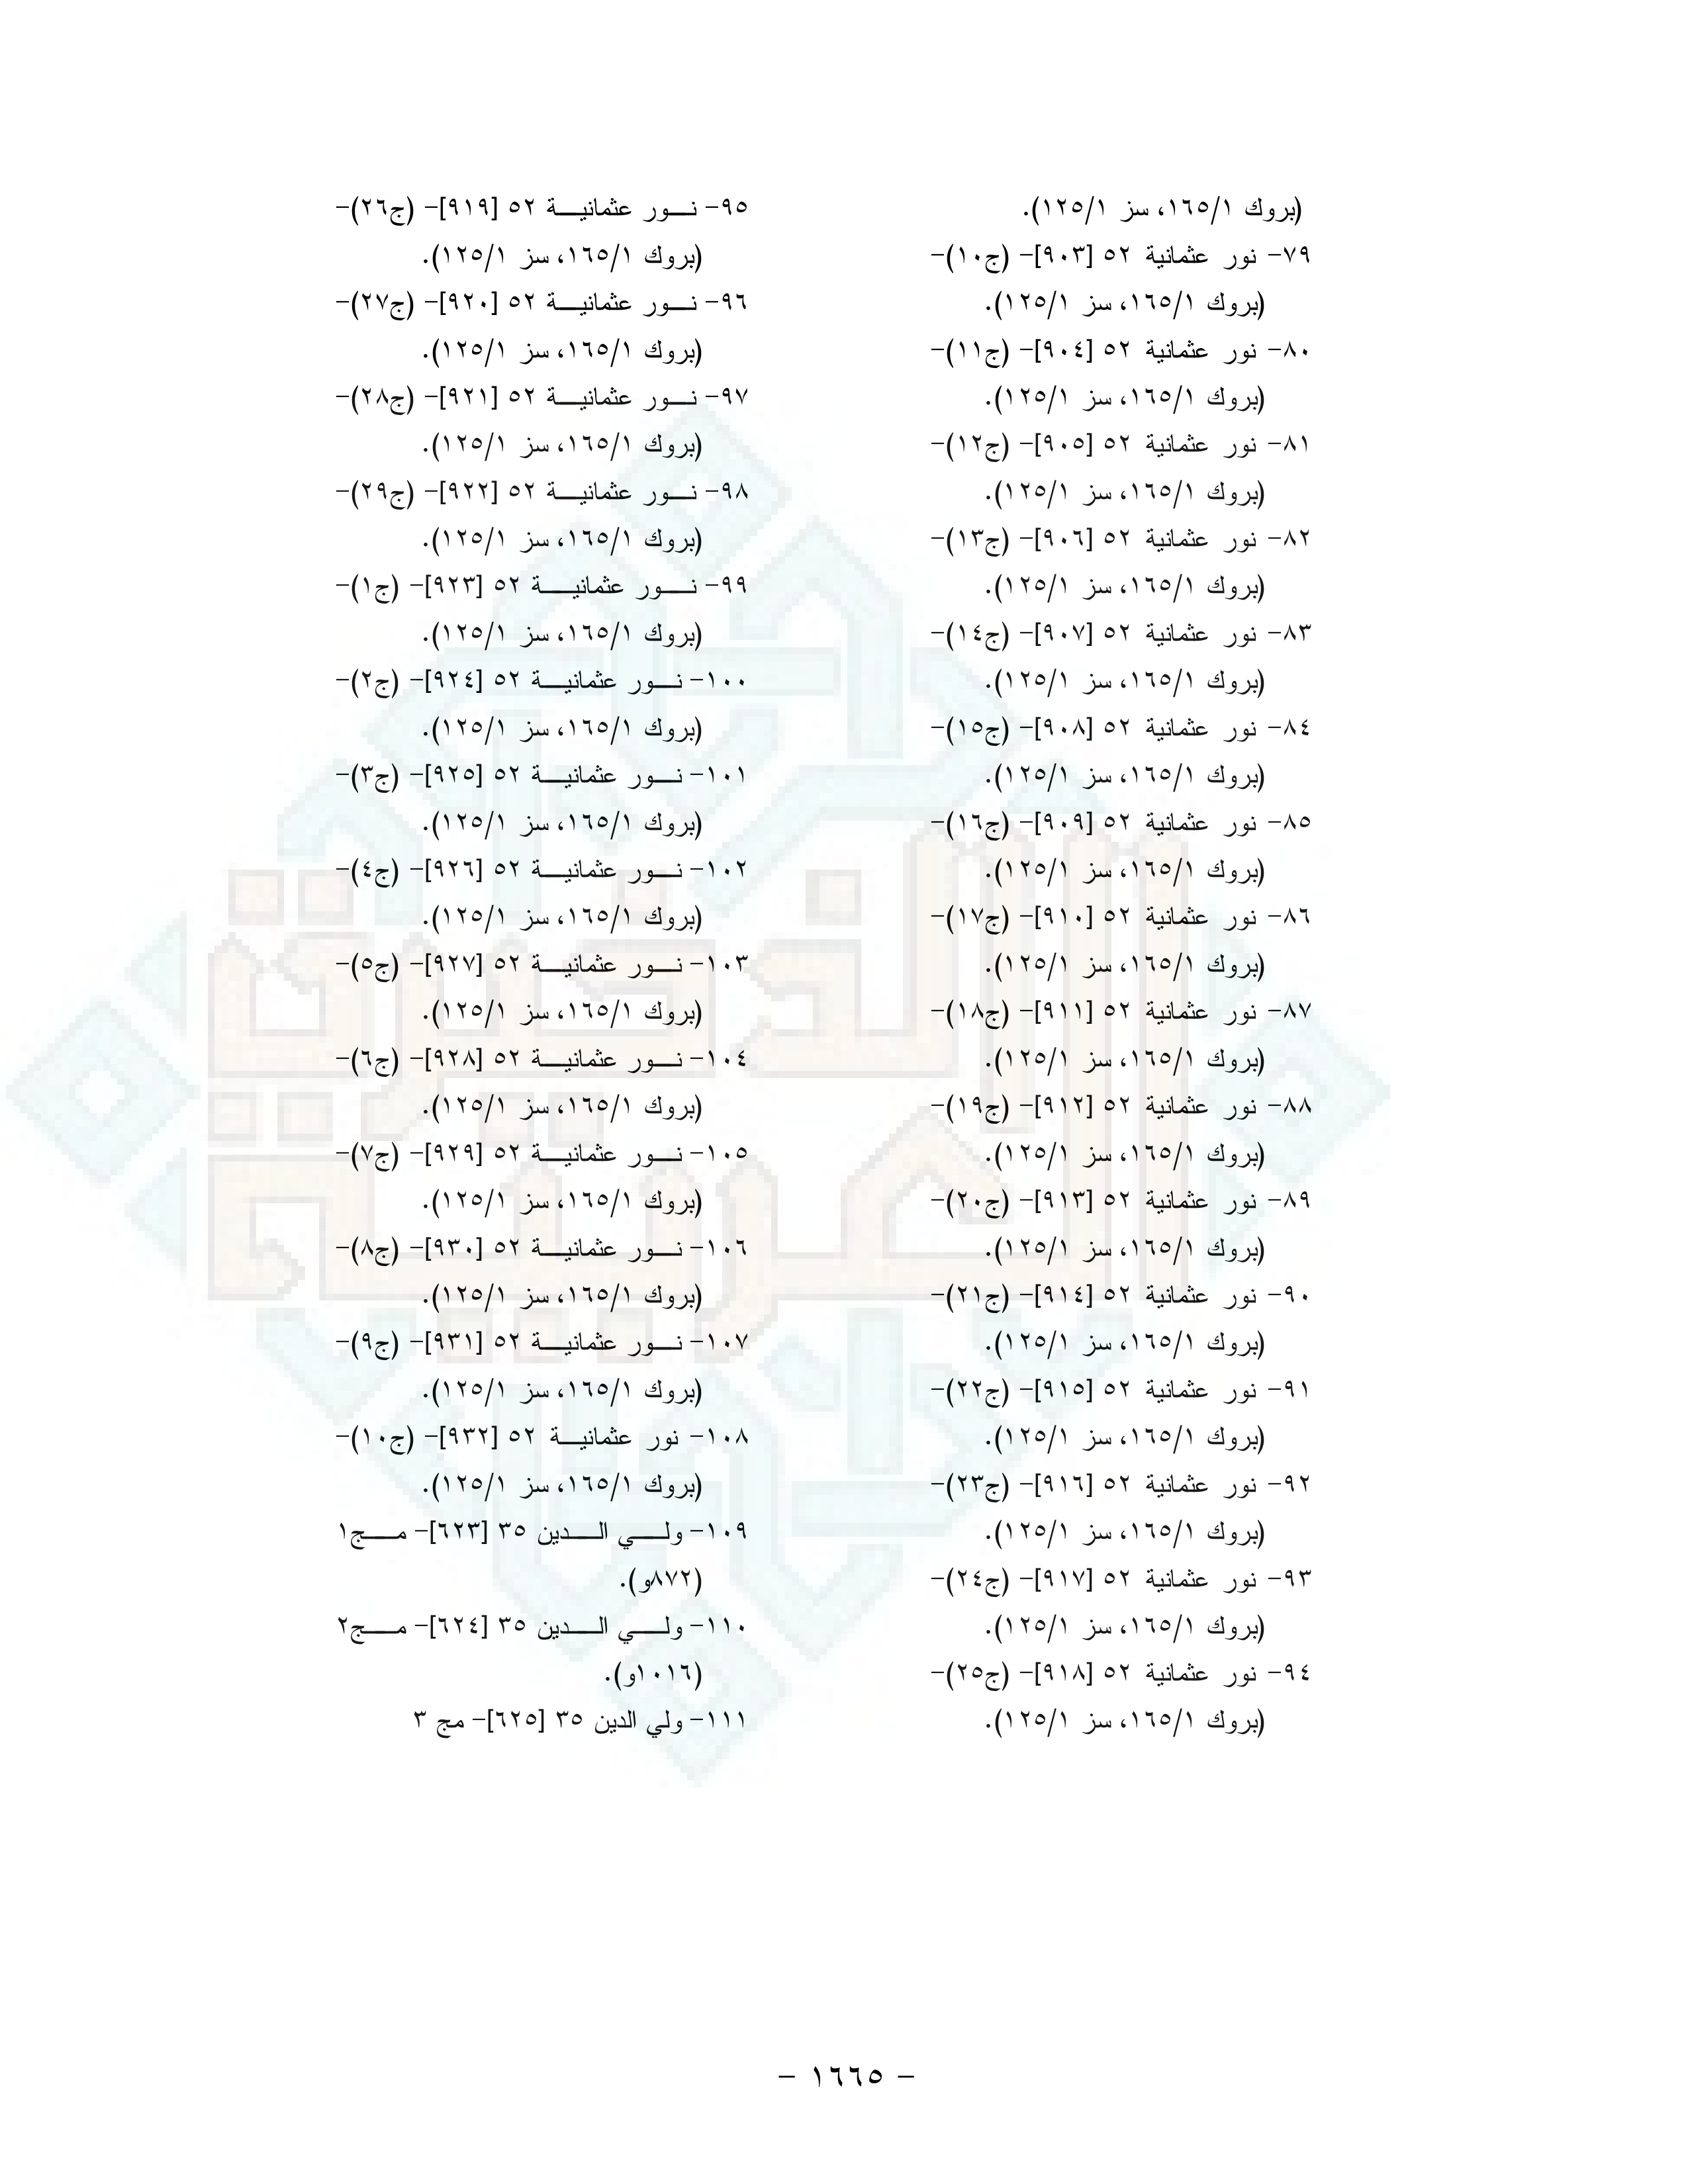 (بروك ١٦٥/١، سز ١٢٥/١).
٧٩- نور عثمانية ٥٢ [٩٠٣]- (ج١٠)-
(بروك ١٦٥/١، سز ١٢٥/١).
٨٠- نور عثمانية ٥٢ [٩٠٤]- (ج١١)-
(بروك ١٦٥/١، سز ١٢٥/١).
٨١- نور عثمانية ٥٢ [٩٠٥]- (ج١٢)-
(بروك ١٦٥/١، سز ١٢٥/١).
٨٢- نور عثمانية ٥٢ [٩٠٦]- (ج١٣)-
(بروك ١٦٥/١، سز ١٢٥/١).
٨٣- نور عثمانية ٥٢ [٩٠٧]- (ج١٤)-
(بروك ١٦٥/١، سز ١٢٥/١).
٨٤- نور عثمانية ٥٢ [٩٠٨]- (ج١٥)-
(بروك ١٦٥/١، سز ١٢٥/١).
٨٥- نور عثمانية ٥٢ [٩٠٩]- (ج١٦)-
(بروك ١٦٥/١، سز ١٢٥/١).
٨٦- نور عثمانية ٥٢ [٩١٠]- (ج١٧)-
(بروك ١٦٥/١، سز ١٢٥/١).
٨٧- نور عثمانية ٥٢ [٩١١]- (ج١٨)-
(بروك ١٦٥/١، سز ١٢٥/١).
٨٨- نور عثمانية ٥٢ [٩١٢]- (ج١٩)-
(بروك ١٦٥/١، سز ١٢٥/١).
٨٩- نور عثمانية ٥٢ [٩١٣]- (ج٢٠)-
(بروك ١٦٥/١، سز ١٢٥/١).
٩٠- نور عثمانية ٥٢ [٩١٤]- (ج٢١)-
(بروك ١٦٥/١، سز ١٢٥/١).
٩١- نور عثمانية ٥٢ [٩١٥]- (ج٢٢)-
(بروك ١٦٥/١، سز ١٢٥/١).
٩٢- نور عثمانية ٥٢ [٩١٦]- (ج٢٣)-
(بروك ١٦٥/١، سز ١٢٥/١).
٩٣- نور عثمانية ٥٢ [٩١٧]- (ج٢٤)-
(بروك ١٦٥/١، سز ١٢٥/١).
٩٤- نور عثمانية ٥٢ [٩١٨]- (ج٢٥)-
(بروك ١٦٥/١، سز ١٢٥/١).
٩٥- نور عثمانية ٥٢ [٩١٩]- (ج٢٦)-
(بروك ١٦٥/١، سز ١٢٥/١).
٩٦- نور عثمانية ٥٢ [٩٢٠]- (ج٢٧)-
(بروك ١٦٥/١، سز ١٢٥/١).
٩٧- نور عثمانية ٥٢ [٩٢١]- (ج٢٨)-
(بروك ١٦٥/١، سز ١٢٥/١).
٩٨- نور عثمانية ٥٢ [٩٢٢]- (ج٢٩)-
(بروك ١٦٥/١، سز ١٢٥/١).
٩٩- نور عثمانية ٥٢ [٩٢٣]- (ج١)-
(بروك ١٦٥/١، سز ١٢٥/١).
١٠٠- نور عثمانية ٥٢ [٩٢٤]- (ج٢)-
(بروك ١٦٥/١، سز ١٢٥/١).
١٠١- نور عثمانية ٥٢ [٩٢٥]- (ج٣)-
(بروك ١٦٥/١، سز ١٢٥/١).
١٠٢- نور عثمانية ٥٢ [٩٢٦]- (ج٤)-
(بروك ١٦٥/١، سز ١٢٥/١).
١٠٣- نور عثمانية ٥٢ [٩٢٧]- (ج٥)-
(بروك ١٦٥/١، سز ١٢٥/١).
١٠٤- نور عثمانية ٥٢ [٩٢٨]- (ج٦)-
(بروك ١٦٥/١، سز ١٢٥/١).
١٠٥- نور عثمانية ٥٢ [٩٢٩]- (ج٧)-
(بروك ١٦٥/١، سز ١٢٥/١).
١٠٦- نور عثمانية ٥٢ [٩٣٠]- (ج٨)-
(بروك ١٦٥/١، سز ١٢٥/١).
١٠٧- نور عثمانية ٥٢ [٩٣١]- (ج٩)-
(بروك ١٦٥/١، سز ١٢٥/١).
١٠٨- نور عثمانية ٥٢ [٩٣٢]- (ج١٠)-
(بروك ١٦٥/١، سز ١٢٥/١).
١٠٩- ولي الدين ٣٥ [٦٢٣]- مج١
(٨٧٢و).
١١٠- ولي الدين ٣٥ [٦٢٤]- مج٢
(١٠١٦و).
١١١- ولي الدين ٣٥ [٦٢٥]- مج ٣
الذخيرة
العربية
- ١٦٦٥ -